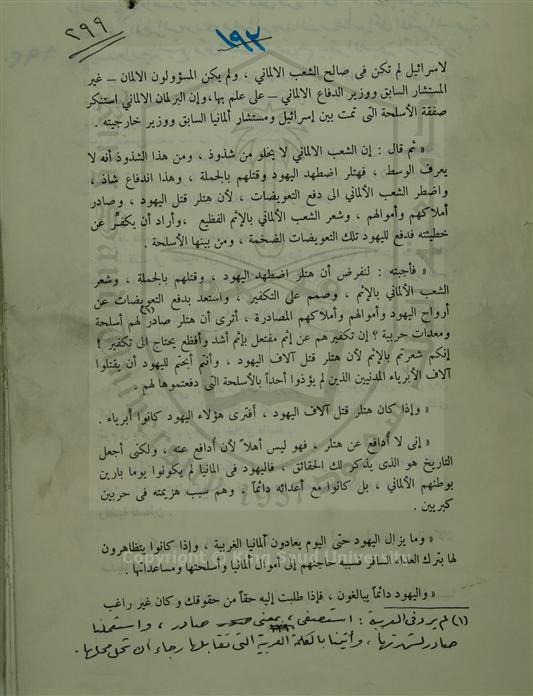 ٢٩٩
١٩٢
لاسرائيل لم تكن فى صالح الشعب الالماني ، ولم يكن المسؤولون الالمان ــ غير
المستشار السابق ووزير الدفاع الالماني ــ على علم بها ، وإن البرلمان الالماني استنكر
صفقة الأسلحة التى تمت بين إسرائيل ومستشار ألمانيا السابق ووزير خارجيته .
« ثم قال : إن الشعب الالماني لا يخلو من شذوذ ، ومن هذا الشذوذ أنه لا
يعرف الوسط ، فهتلر اضطهد اليهود وقتلهم بالجملة ، وهذا اندفاع شاذ ،
واضطر الشعب الألماني الى دفع التعويضات ، لأن هتلر قتل اليهود ، وصادر
أملاكهم وأموالهم ، وشعر الشعب الألماني بالإثم الفظيع ، وأراد أن يكفّر عن
خطيئته فدفع لليهود تلك التعويضات الضخمة ، ومن بينها الأسلحة .
« فأجبته : لنفرض أن هتلر اضطهد اليهود ، وقتلهم بالجملة ، وشعر
الشعب الألماني بالإثم ، وصمم على التكفير ، واستعد بدفع التعويضات عن
أرواح اليهود وأموالهم وأملاكهم المصادرة ، أترى أن هتلر صادر(١) لهم أسلحة
ومعدات حربية ؟ إن تكفيرهم عن إثم مفتعل بإثم أشد وأفظع يحتاج الى تكفير !
إنكم شعرتم بالإثم لأن هتلر قتل آلاف اليهود ، وأنتم أبحتم لليهود أن يقتلوا
آلاف الأبرياء المدنيين الذين لم يؤذوا أحداً بالأسلحة التى دفعتموها لهم .
« وإذا كان هتلر قتل آلاف اليهود ، أفترى هؤلاء اليهود كانوا أبرياء .
« إنى لا أدافع عن هتلر ، فهو ليس أهلاً لأن أدافع عنه ، ولكنى أجعل
التاريخ هو الذى يذكر لك الحقائق ، فاليهود فى المانيا لم يكونوا يوما بارين
بوطنهم الألماني ، بل كانوا مع أعدائه دائماً ، وهم سبب هزيمته فى حربين
كبريين .
« وما يزال اليهود حتى اليوم يعادون ألمانيا الغربية ، وإذا كانوا يتظاهرون
لها بترك العداء السافر فسببه حاجتهم إلى أموال ألمانيا وأسلحتها ومساعداتها .
Copyright © King Saud University
« واليهود دائماً يبالغون ، فإذا طلبت إليه حقاً من حقوقك وكان غير راغب
(١) لم يرد فى العربية : استصفى ، بمعنى صادر ، واستعملنا
صادر لشهرتها ، وأتينا بالكلمة العربية التى تقابلها رجاء أن تحل محلها .
1957